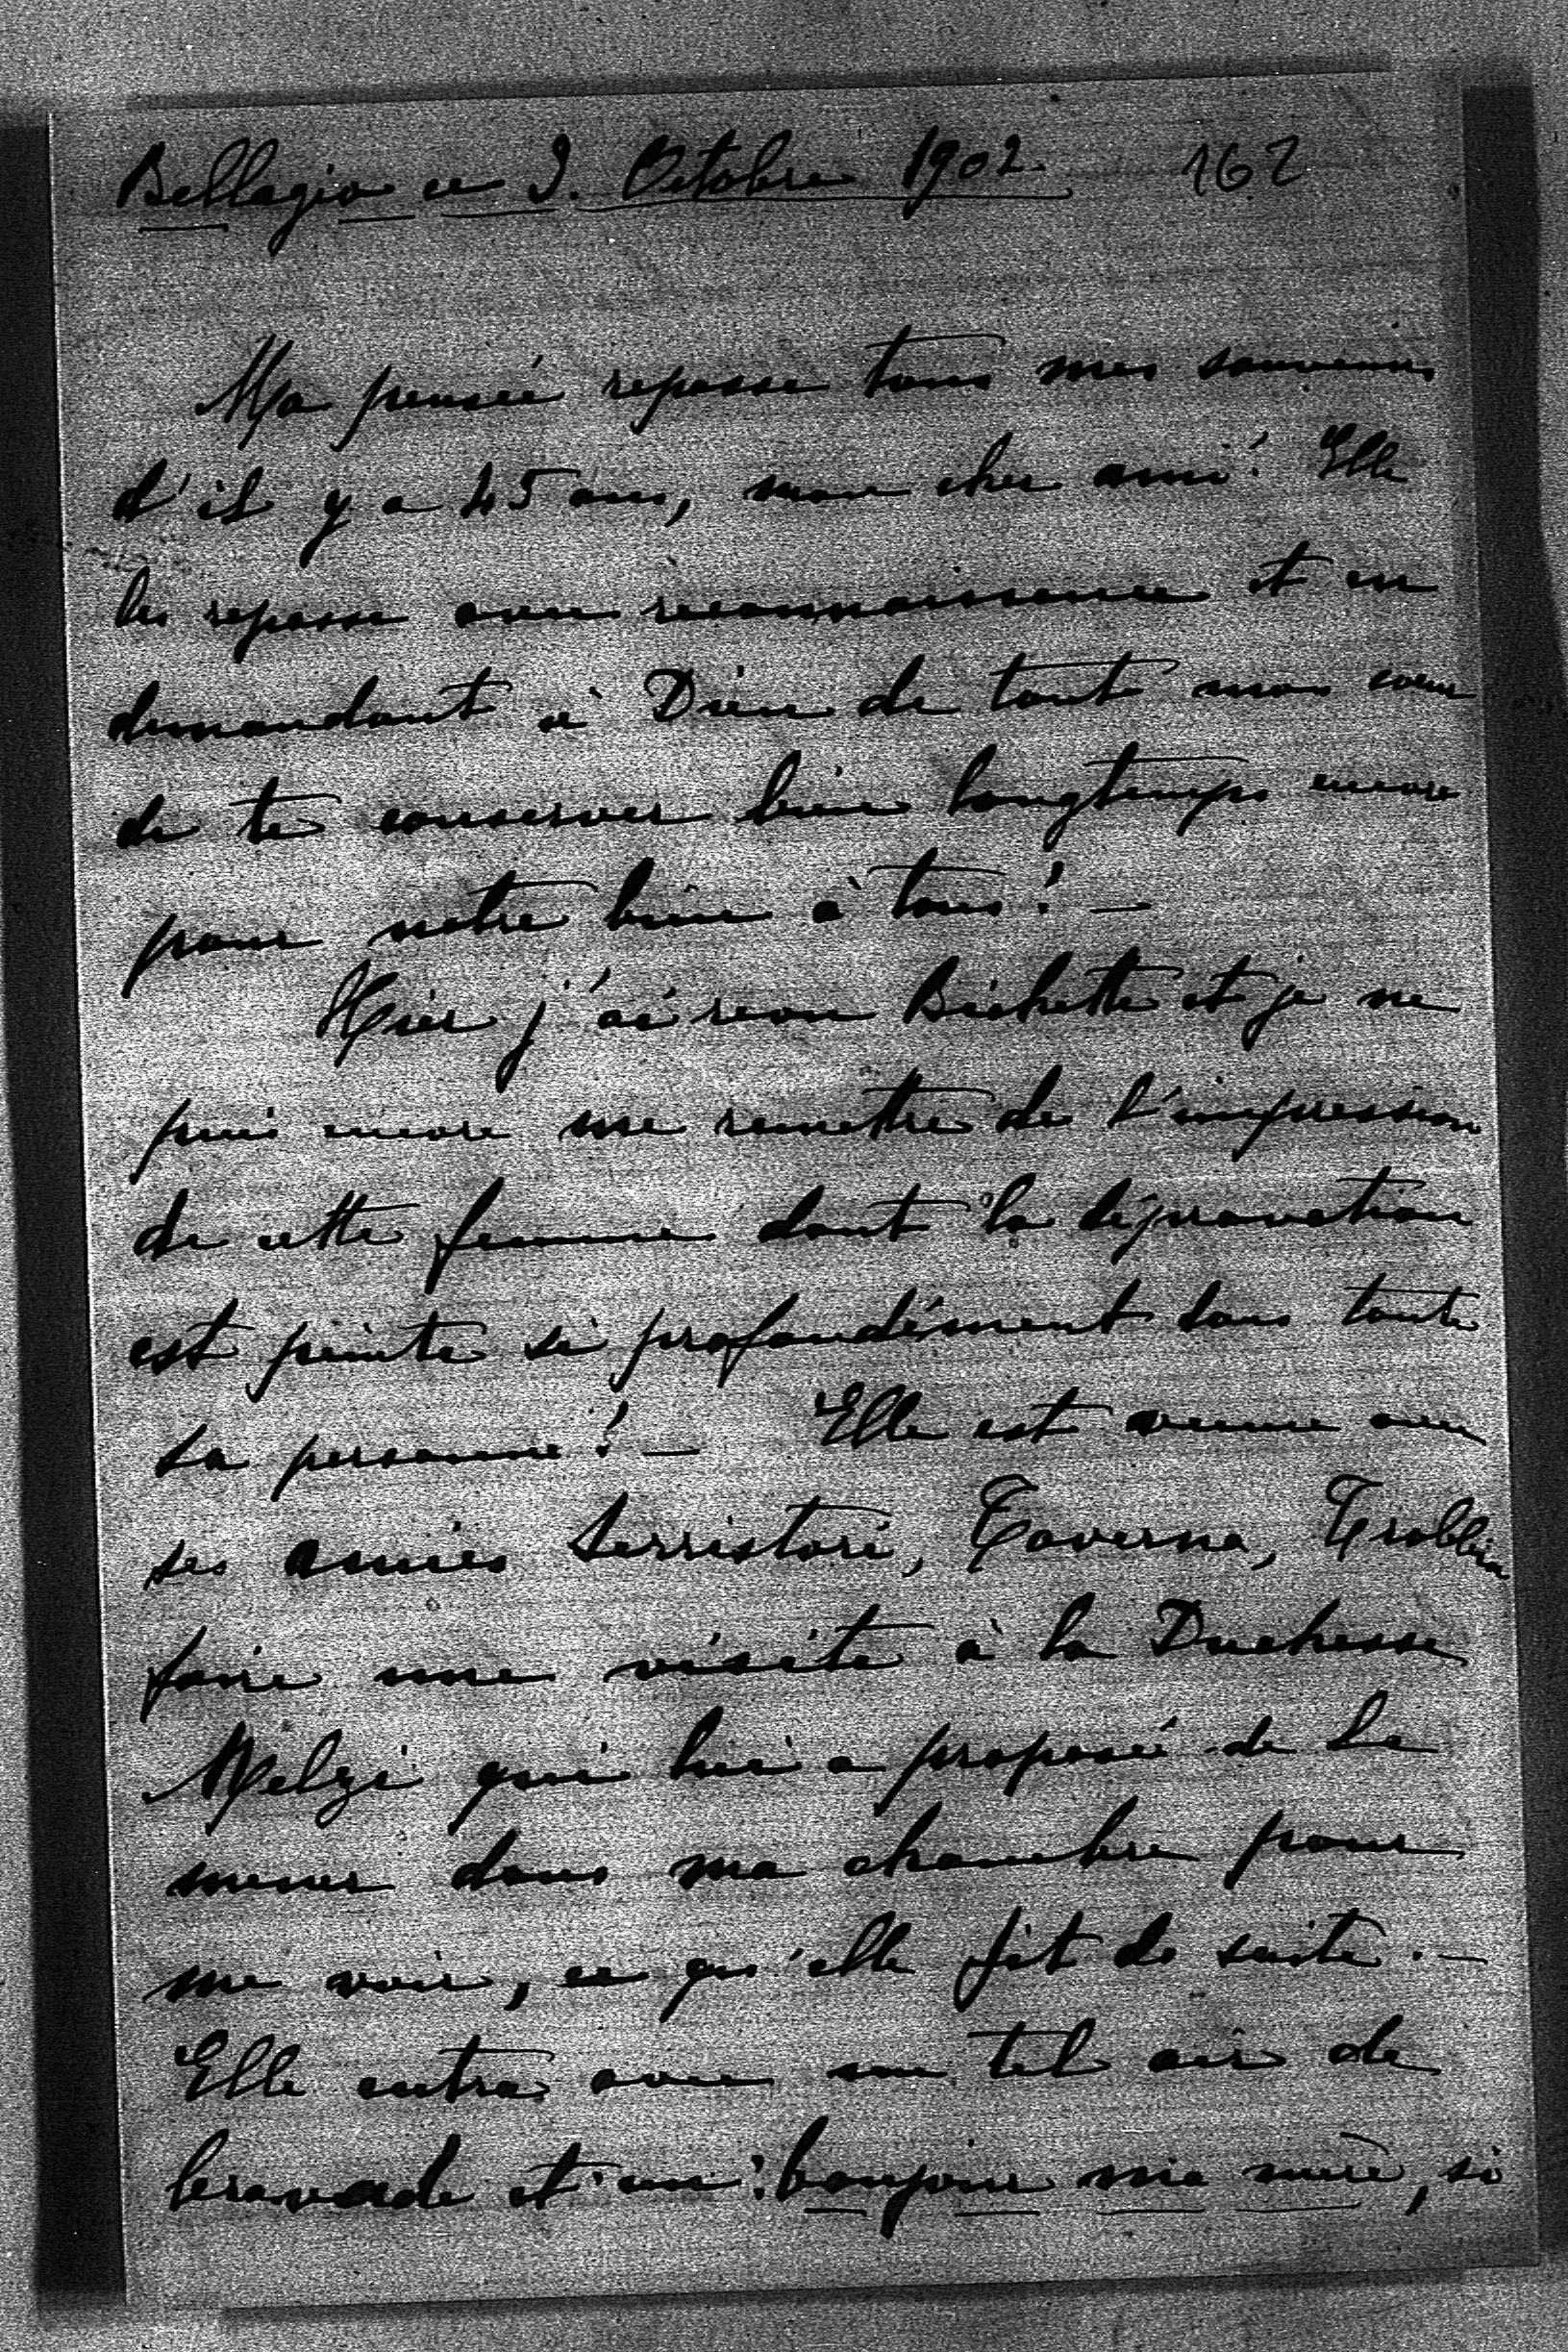 Bellagio ce 9. Octobre 1902. 162
Ma pensée repasse tous mes souvenirs
d'il y a 45 ans, mon cher ami! Elle
les repasse avec reconnaissance et en
demandant à Dieu de tout mon coeur
de te conserver bien longtemps encore
pour notre bien à tous! —
Hier j'ai revu Bichette et je ne
puis encore me remettre de l'impression
de cette femme dont la dépravation
est peinte si profondément dans toute
sa personne! — Elle est venue avec
ses amies Serristori, Taverna,
faire une visite à la Duchesse
Melzi qui lui a proposé de la
mener dans ma chambre pour
me voir, ce qu'elle fit de suite. —
Elle entra avec un tel air de
bravade et un: bonjour ma mère, si